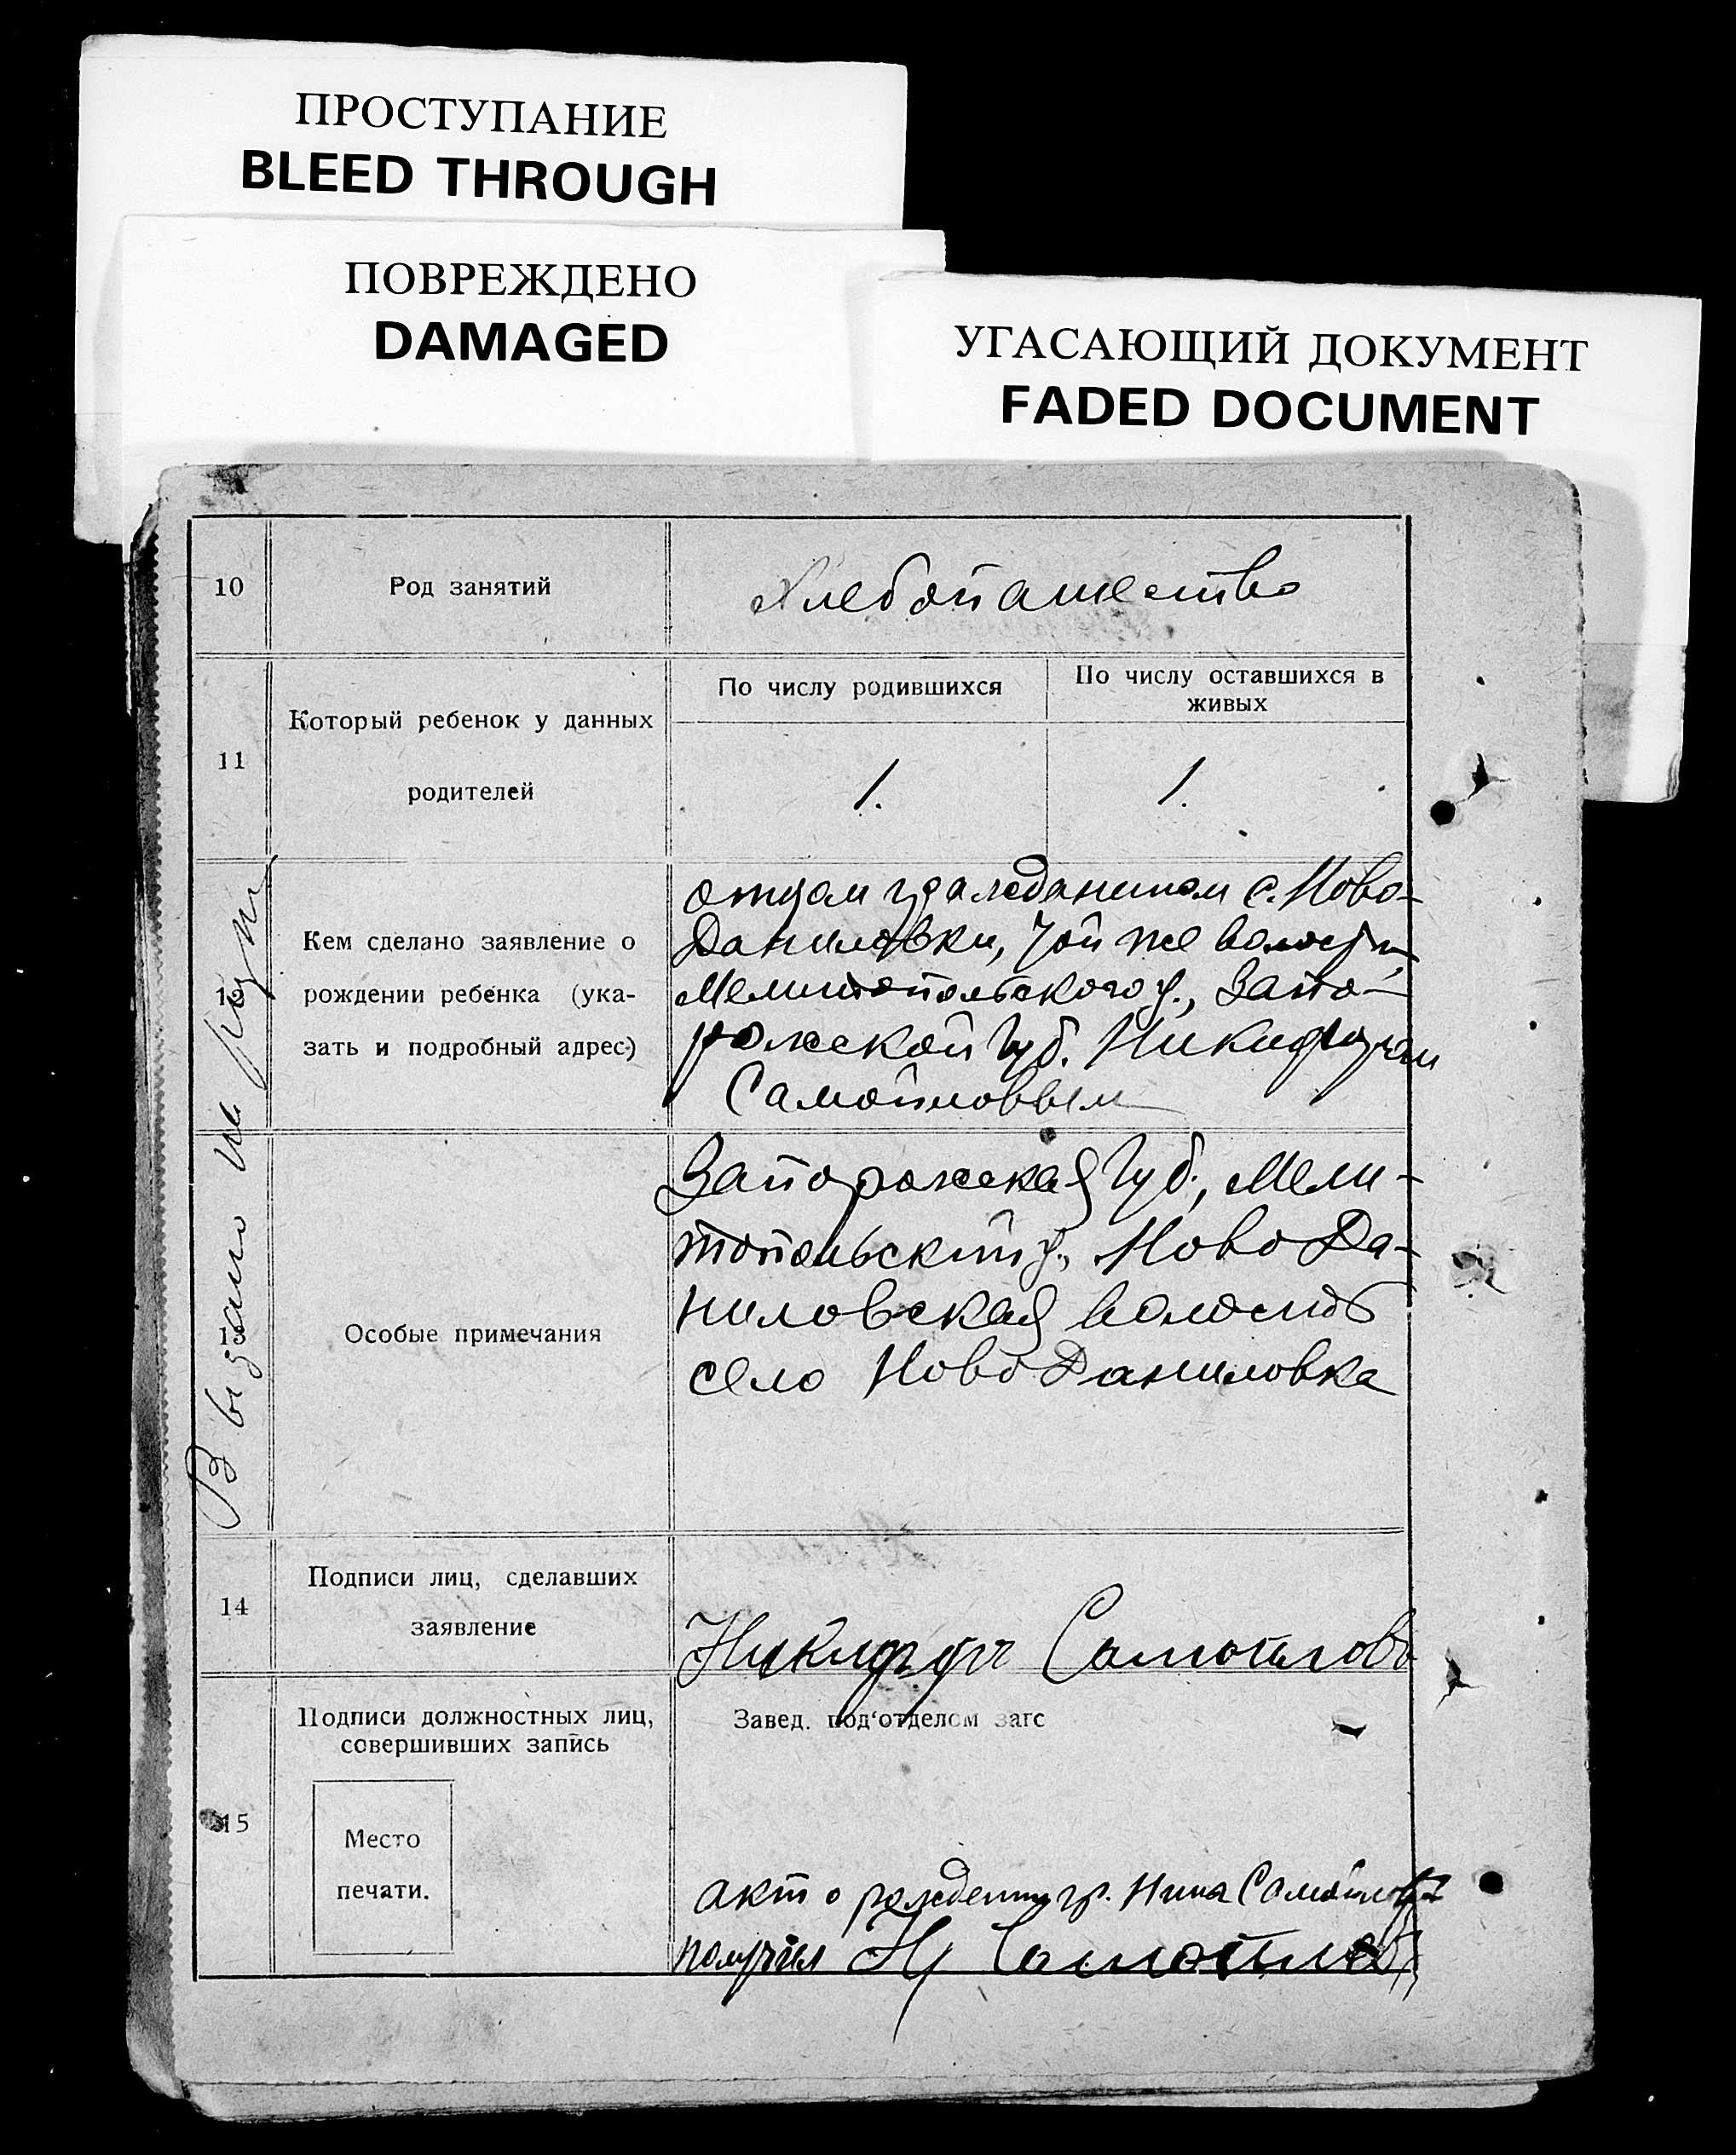 ПРОСТУПАНИЕ
BLEED THROUGH
ПОВРЕЖДЕНО
DAMAGED
УГАСАЮЩИЙ ДОКУМЕНТ
FADED DOCUMENT
10
Род занятий
Хлебопашество
11
Который ребенок у данных
родителей
По числу родившихся
По числу оставшихся в
живых
1.
1.
12
Кем сделано заявление о
рождении ребенка (ука-
зать и подробный адрес)
отцом гражданином с. Ново-
Даниловки, той же волости,
Мелитопольского у., Запо-
рожской губ. Никифором
Самойловым
13
Особые примечания
Запорожская губ., Мели-
топольский у., Ново Да-
ниловская волость
село Ново Даниловка
Выдано на руки
14
Подписи лиц, сделавших
заявление
Никифор Самойлов
15
Подписи должностных лиц,
совершивших запись
Место
печати.
Завед. под'отделом загс
акт о рождении гр. Нина Самойлова
получил Н Самойлов